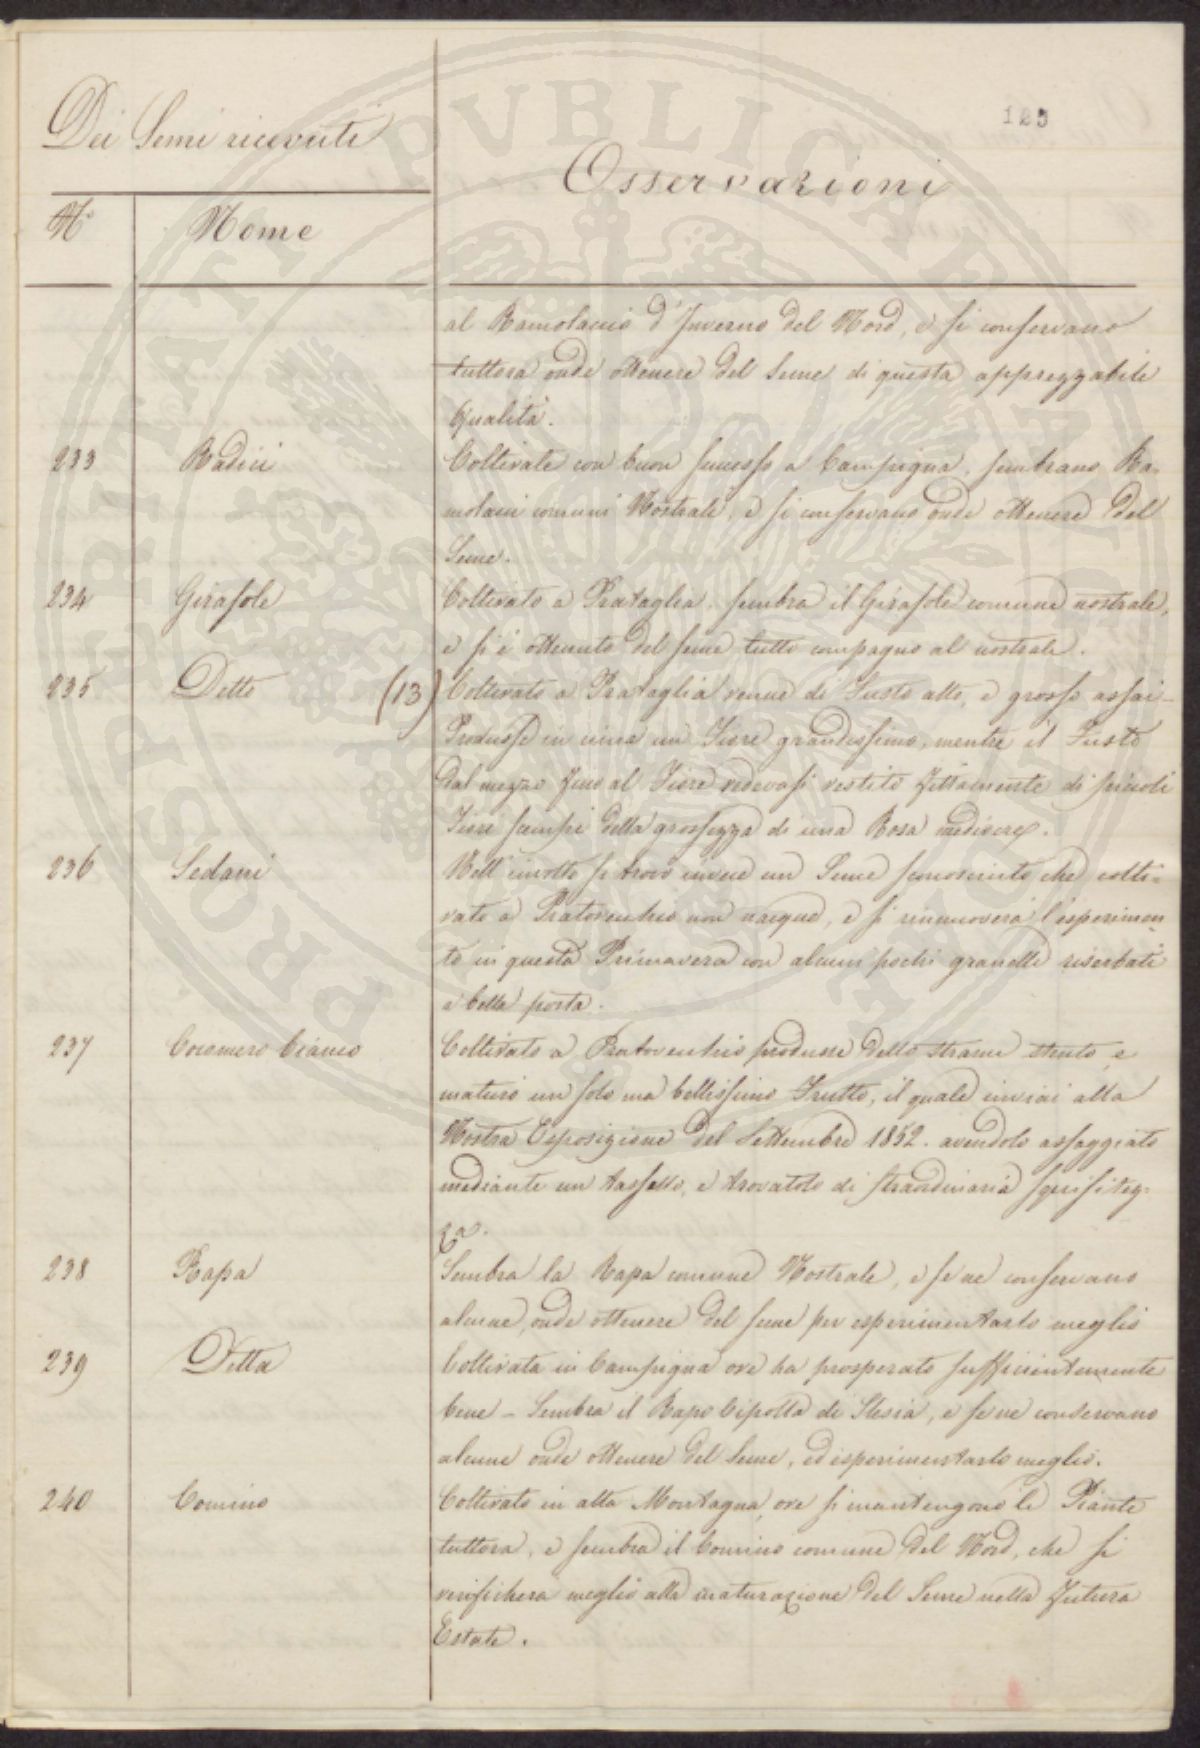 123
Dei Semi ricevuti
Osservazioni
N.° Nome
al Ramolaccio d'Inverno del Nord, e si conservano
tuttora onde ottenere del Seme di questa apprezzabile
qualità.
233 Radici Coltivate con buon successo a Campigna, sembrano Ra-
molacci comuni Nostrali, e si conservano onde ottenere del
Seme.
234 Girasole Coltivato a Prataglia, sembra il Girasole comune nostrale,
e si è ottenuto del seme tutto compagno al nostrale.
235 Detto (13) Coltivato a Prataglia venne di Fusto alto, e grosso assai -
Produsse in cima un Fiore grandissimo, mentre il Fusto
dal mezzo fino al Fiore vedevasi vestito fittamente di piccoli
Fiori sempi della grossezza di una Rosa mediocre.
236 Sedani Nell'involto si trovò invece un Seme sconosciuto che colti-
vato a Pratovecchio non nacque, e si rinnuoverà l'esperimen-
to in questa Primavera con alcuni pochi granelli riserbati
a bella posta.
237 Cocomero bianco Coltivato a Pratovecchio produsse dello strame stento e
maturò un solo ma bellissimo Frutto, il quale inviai alla
Nostra Esposizione del Settembre 1852. avendolo assaggiato
mediante un tassello, e trovatolo di straordinaria squisitez-
za.
238 Rapa Sembra la Rapa comune Nostrale, e se ne conservano
alcune, onde ottenere del seme per esperimentarlo meglio
239 Detta Coltivata in Campigna ove ha prosperato sufficientemente
bene - Sembra il Rapo Cipolla di Slesia, e se ne conservano
alcune onde ottenere del Seme, ed esperimentarlo meglio.
240 Comino Coltivato in alta Montagna, ove si mantengono le Piante
tuttora, e sembra il Comino comune del Nord, che si
verificherà meglio alla maturazione del Seme nella futura
Estate.
PROSPERITATI PVBLICAE AVGENDAE